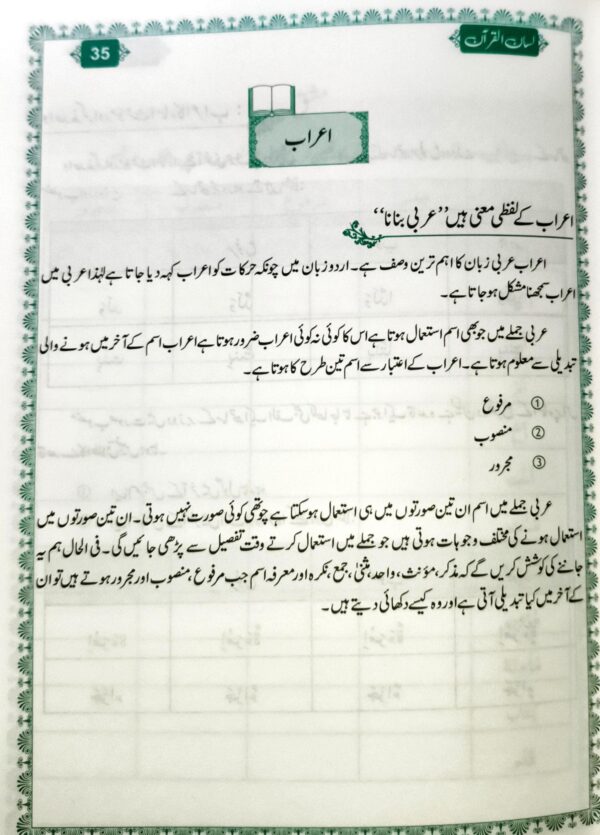 35
لسان القرآن
اعراب
اعراب کے لفظی معنی ہیں ’’عربی بنانا‘‘
اعراب عربی زبان کا اہم ترین وصف ہے۔ اردو زبان میں چونکہ حرکات کو اعراب کہہ دیا جاتا ہے لہٰذا عربی میں
اعراب سمجھنا مشکل ہو جاتا ہے۔
عربی جملے میں جو بھی اسم استعمال ہوتا ہے اس کا کوئی نہ کوئی اعراب ضرور ہوتا ہے اعراب اسم کے آخر میں ہونے والی
تبدیلی سے معلوم ہوتا ہے۔ اعراب کے اعتبار سے اسم تین طرح کا ہوتا ہے۔
① مرفوع
② منصوب
③ مجرور
عربی جملے میں اسم ان تین صورتوں میں ہی استعمال ہو سکتا ہے چوتھی کوئی صورت نہیں ہوتی۔ ان تین صورتوں میں
استعمال ہونے کی مختلف وجوہات ہوتی ہیں جو جملے میں استعمال کرتے وقت تفصیل سے پڑھی جائیں گی۔ فی الحال ہم یہ
جاننے کی کوشش کریں گے کہ مذکر، مؤنث، واحد، مثنیٰ، جمع، نکرہ اور معرفہ اسم جب مرفوع، منصوب اور مجرور ہوتے ہیں تو ان
کے آخر میں کیا تبدیلی آتی ہے اور وہ کیسے دکھائی دیتے ہیں۔